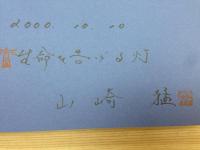 2000.10.10
生命を告げる灯
山崎 猛